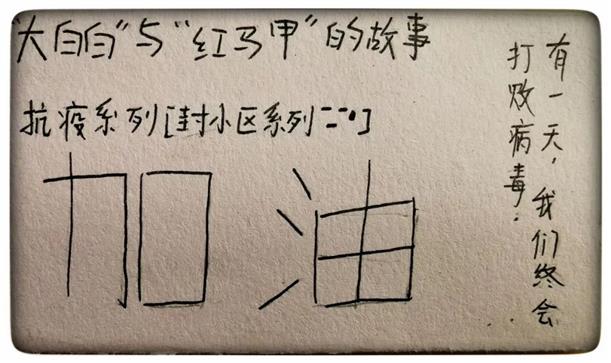 "大白白"与"红马甲"的故事
抗疫系列[封小区系列二]
加油
有一天,我们终会
打败病毒.